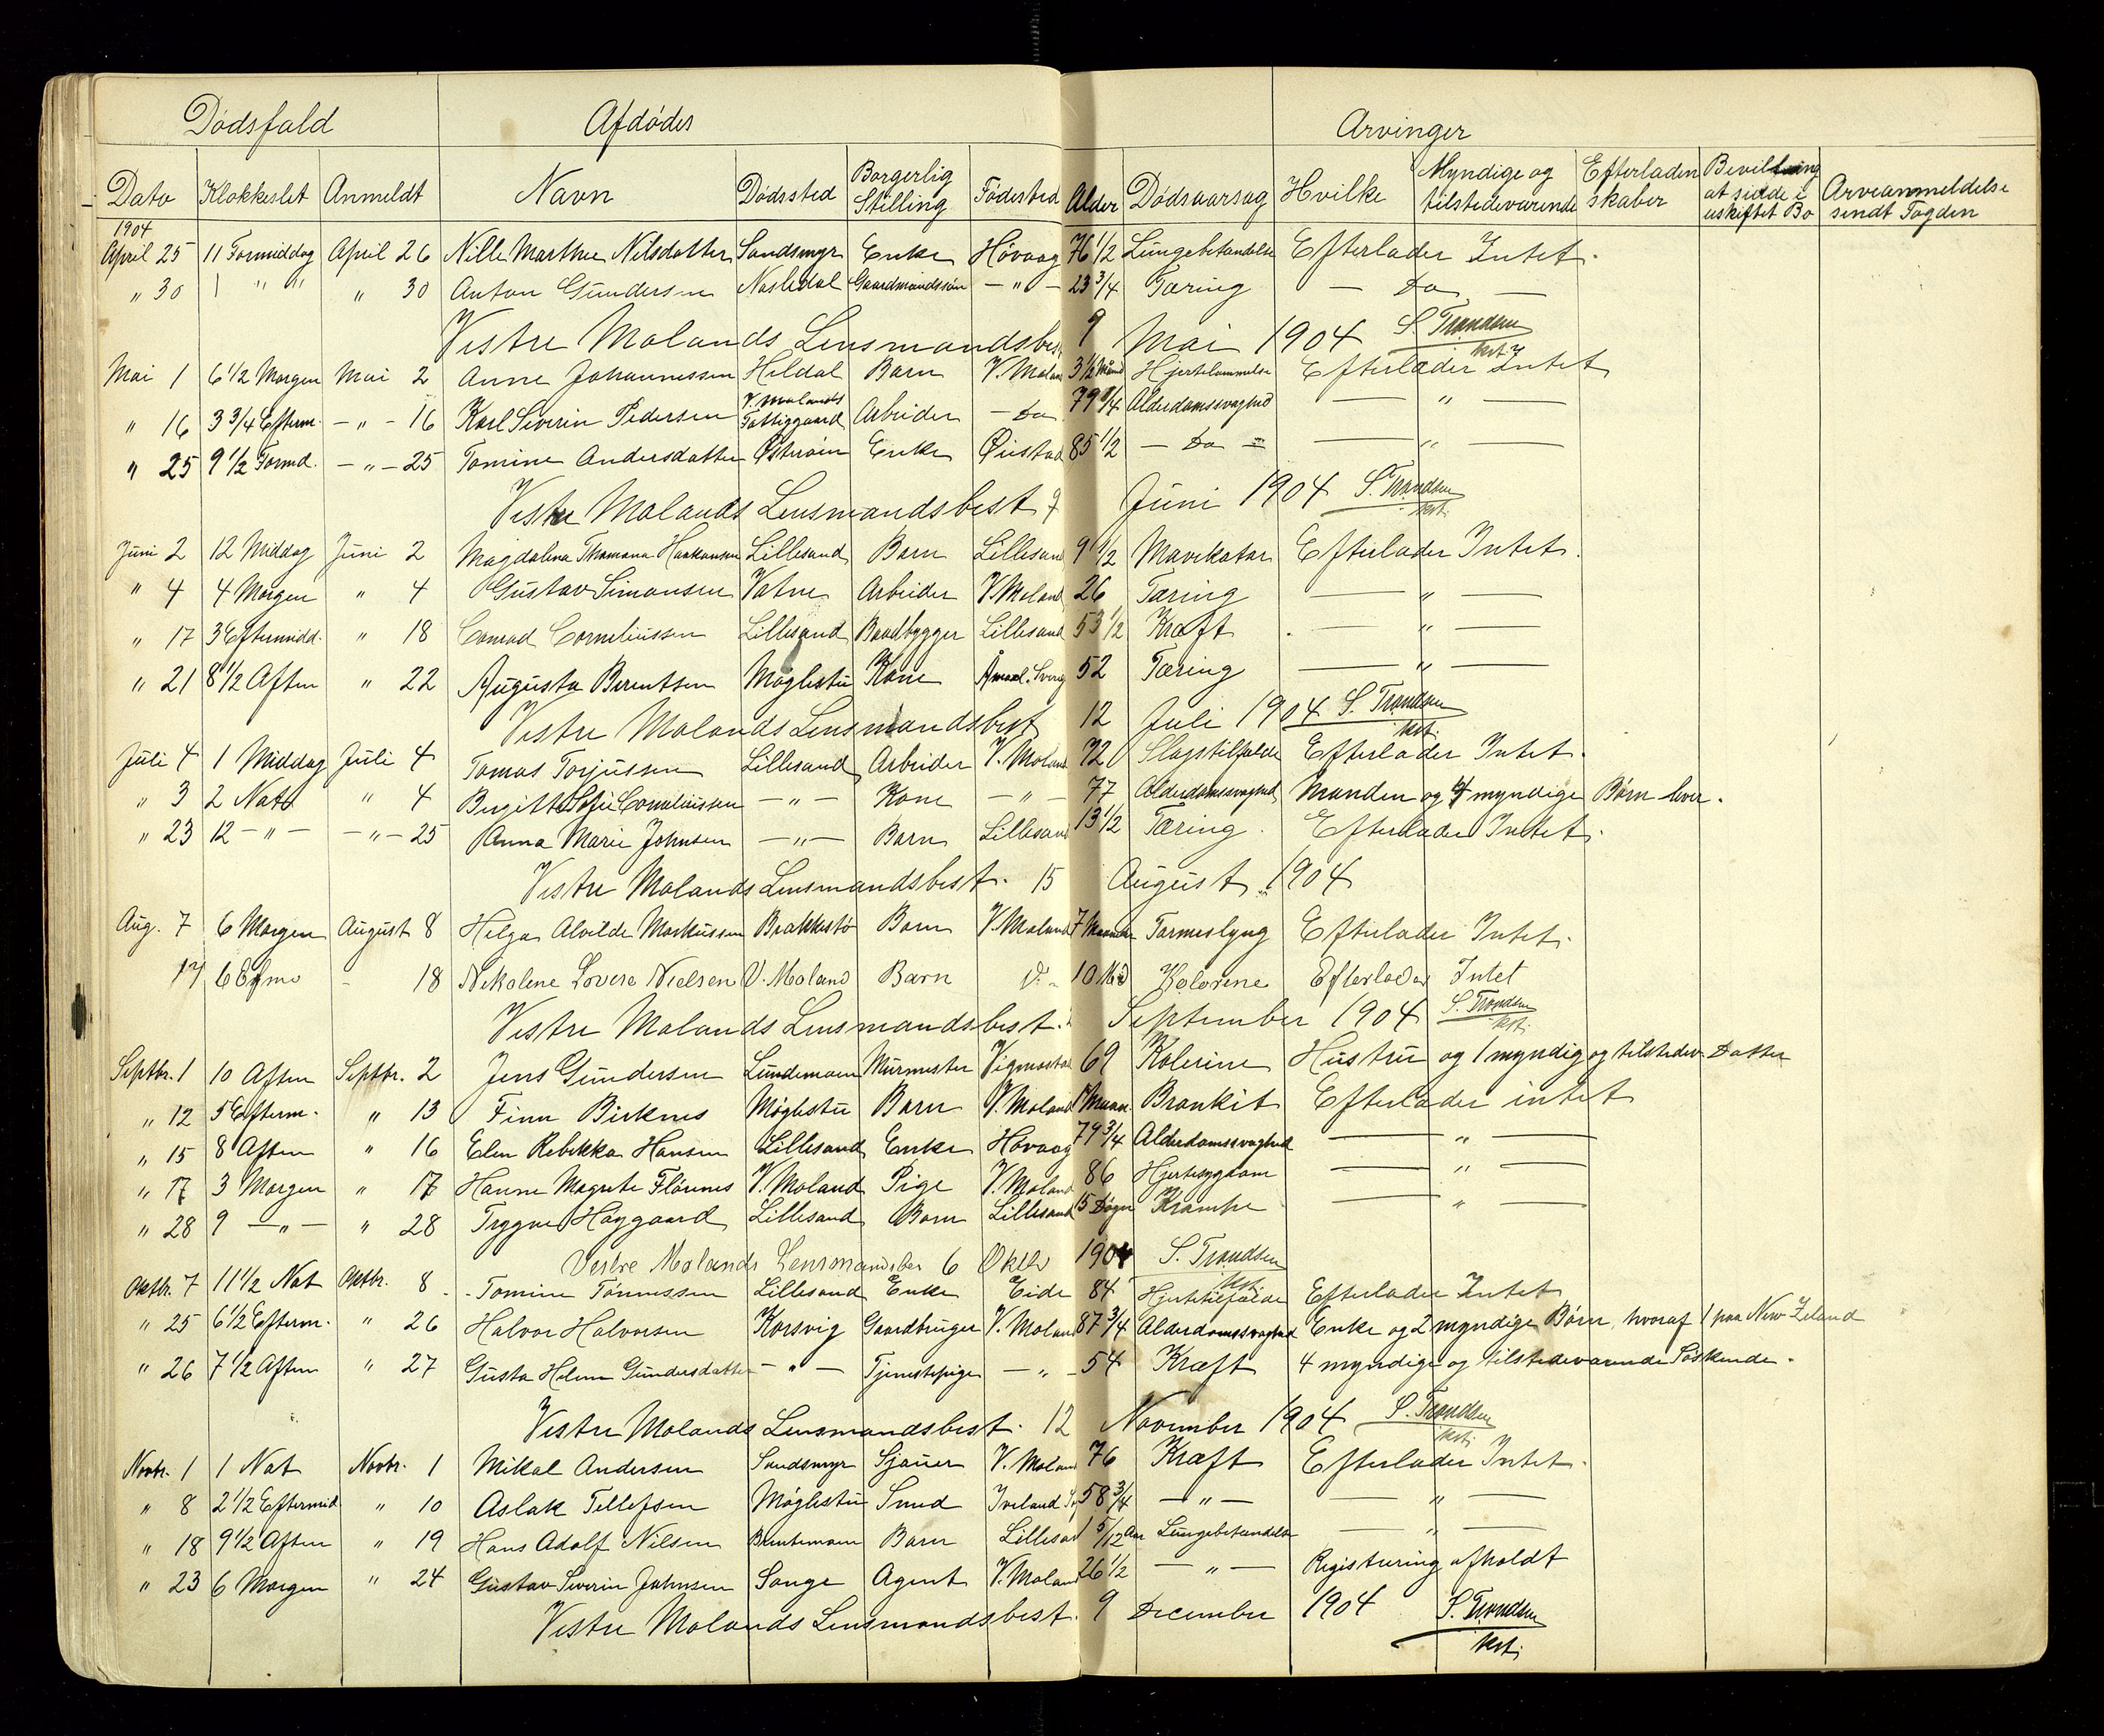 Dødsfald Afdødes Arvinger
Dato Klokkeslet Anmeldt Navn Dødssted Borgerlig Stilling Fødested Alder Dødsaarsag Hvilke Myndige og tilstedeværende Efterladenskaber Bevilling at sidde i uskiftet Bo Arveanmeldelse sendt Fogden
1904
April 25 11 Formiddag April 26 Nille Marthee Nilsdatter Sandsmyr Enke Høvaag 76 1/2 Lungebetændelse Efterlader Intet.
" 30 1 " " " 30 Anton Gundersen Gaardmandssøn — " — 23 3/4 Tæring — Do —
Vestre Molands Lensmandsbest 9 Mai 1904 S. Trondsen kst.
Mai 1 6 1/2 Morgen Mai 2 Anne Johannessen Heldal Barn V. Moland 3 1/2 Maaned Hjertelammelse Efterlader Intet
" 16 3 3/4 Efterm. — " — 16 Karl Severin Pedersen V. Molands Fattiggaard Arbeider — Do 79 Alderdomssvaghed — " —
" 25 9 1/2 Formd. — " — 25 Tomine Andersdatter Østerøen Enke Øiestad 85 1/2 — Do — — " —
Vestre Molands Lensmandsbest 9 Juni 1904 S. Trondsen kst.
Juni 2 12 Middag Juni 2 Magdalena Thomana Haakonsen Lillesand Barn Lillesand 9 1/2 Mavekatar Efterlader Intet.
" 4 4 Morgen " 4 Gustav Simonsen Vatne Arbeider V. Moland 26 Tæring — " —
" 17 3 Eftermidd. " 18 Conrad Corneliussen Lillesand Baadbygger Lillesand 53 1/2 Kræft — " —
" 21 8 1/2 Aften " 22 Augusta Berentsen Møglestu Kone Åmaal. Sverig 52 Tæring — " —
Vestre Molands Lensmandsbest 12 Juli 1904 S. Trondsen kst.
Juli 4 1 Middag Juli 4 Tomas Torjussen Lillesand Arbeider V. Moland 72 Slagstilfælde Efterlader Intet.
" 3 2 Nat " 4 Birgitte Sofie Corneliussen — " — Kone — " — 77 Alderdomssvaghed Manden og 4 myndige Børn lever.
" 23 12 — " — — " — 25 Anna Marie Johnsen — " — Barn Lillesand 13 1/2 Tæring. Efterlader Intet.
Vestre Molands Lensmandsbest. 15 August 1904
Aug. 7 6 Morgen August 8 Helga Alvilde Markussen Brækkestø Barn V. Moland 7 Maaneder Tarmeslyng Efterlader Intet.
17 6 Efmd 18 Nikoline Lovise Nielsen V. Moland Barn d. " 10 Md Kolerine Efterlader Intet
Vestre Molands Lensmandsbest. September 1904 S. Trondsen kst.
Septbr. 1 10 Aften Septbr. 2 Jens Gundersen Lundemoen Murmester Vigmostad 69 Kolerine Hustru og 1 myndig og tilstedev. Datter
" 12 5 Efterm. " 13 Finn Birknes Møglestu Barn V. Moland Maan. Bronkit Efterlader intet
" 15 8 Aften " 16 Elen Rebekka Hansen Lillesand Enke Høvaag 79 3/4 Alderdomssvaghed — " —
" 17 3 Morgen " 17 Hanne Magrete Flørenes V. Moland Pige V. Moland 86 Hjertesygdom — " —
" 28 9 — " — " 28 Trygve Høygaard Lillesand Barn Lillesand 15 Døgn Krampe — " —
Vestre Molands Lensmandsbes 6 Oktbr 1904 S. Trondsen kst.
Oktbr. 7 11 1/2 Nat Oktbr. 8 Tomine Tønnessen Lillesand Enke Eide 84 Hjertetilfælde Efterlader Intet
" 25 6 1/2 Efterm. " 26 Halvor Halvorsen Korsvig Gaardbruger V. Moland 87 3/4 Alderdomssvaghed Enke og 2 myndige Børn, hvoraf 1 paa New Zeland
" 26 7 1/2 Aften " 27 Gusta Helene Gundersdatter — " — Tjenestepige — " — 54 Kræft 4 myndige og tilstedeværende Søskende.
Vestre Molands Lensmandsbest. 12 November 1904 S. Trondsen kst.
Novbr. 1 1 Nat Novbr. 1 Mikal Andersen Sandsmyr Sjauer V. Moland 76 Kræft Efterlader Intet.
" 8 2 1/2 Eftermid " 10 Aslak Tellefsen Møglestu Smed Iveland 58 3/4 — " — — " —
" 18 9 1/2 Aften " 19 Hans Adolf Nilsen Brentemoen Barn Lillesand 1 5/12 Aar Lungebetændelse — " —
" 23 6 Morgen " 24 Gustav Severin Johnsen Songe Agent V. Moland 26 1/2 — " — Registrering afholdt
Vestre Molands Lensmandsbest. 9 December 1904 S. Trondsen kst.